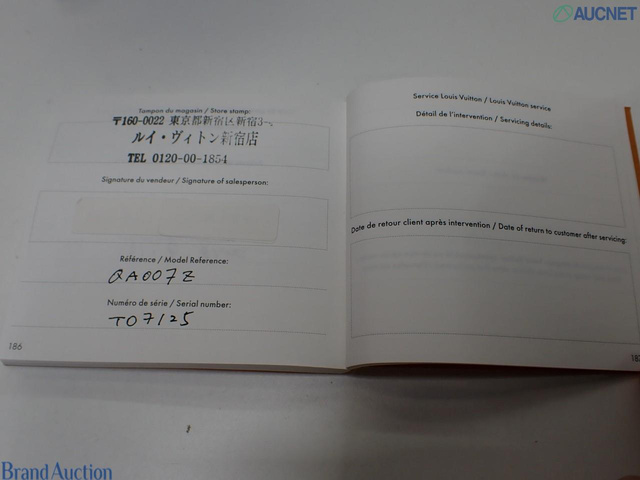 AUCNET
Tampon du magasin / Store stamp:
〒160-0022 東京都新宿区新宿3-
ルイ・ヴィトン新宿店
TEL 0120-00-1854
Signature du vendeur / Signature of salesperson:
Référence / Model Reference:
QA007Z
Numéro de série / Serial number:
TO7125
186
Service Louis Vuitton / Louis Vuitton service
Détail de l'intervention / Servicing details:
Date de retour client après intervention / Date of return to customer after servicing:
Brand Auction